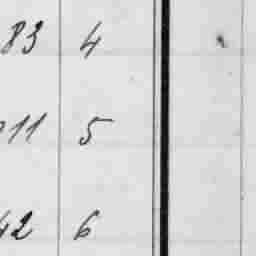 83 4
11 5
42 6